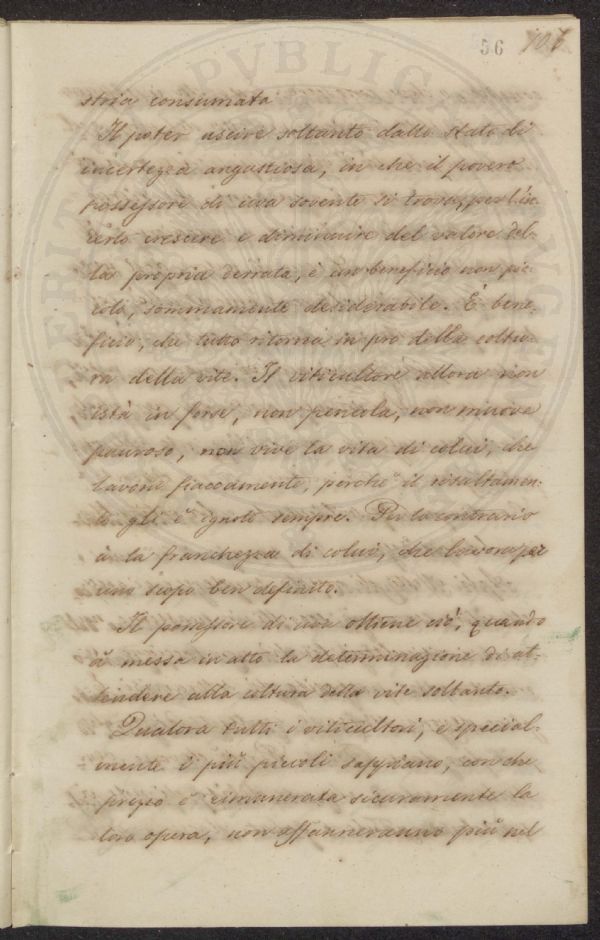 56 106
stria consumata
Il poter uscire soltanto dallo stato di
incertezza angustiosa, in che il povero
possessore di uva sovente si trova, per l'in-
certo crescere e diminuire del valore del-
la propria derrata, è un beneficio non pic-
colo, sommamente desiderabile. È bene-
ficio, che tutto ritorna in pro della coltu-
ra della vite. Il viticultore allora non
istà in forse, non pericola, non muove
pauroso, non vive la vita di colui, che
lavora fiaccamente, perchè il risultamen-
to gli è ignoto sempre. Per lo contrario
à la franchezza di colui, che lavora per
uno scopo ben definito.
Il possessore di uva ottiene ciò, quando
à messa in atto la determinazione di at-
tendere alla coltura della vite soltanto.
Qualora tutti i viticultori, e special-
mente i più piccoli sappiano, con che
prezzo è rimunerata sicuramente la
loro opera, non affanneranno più nel